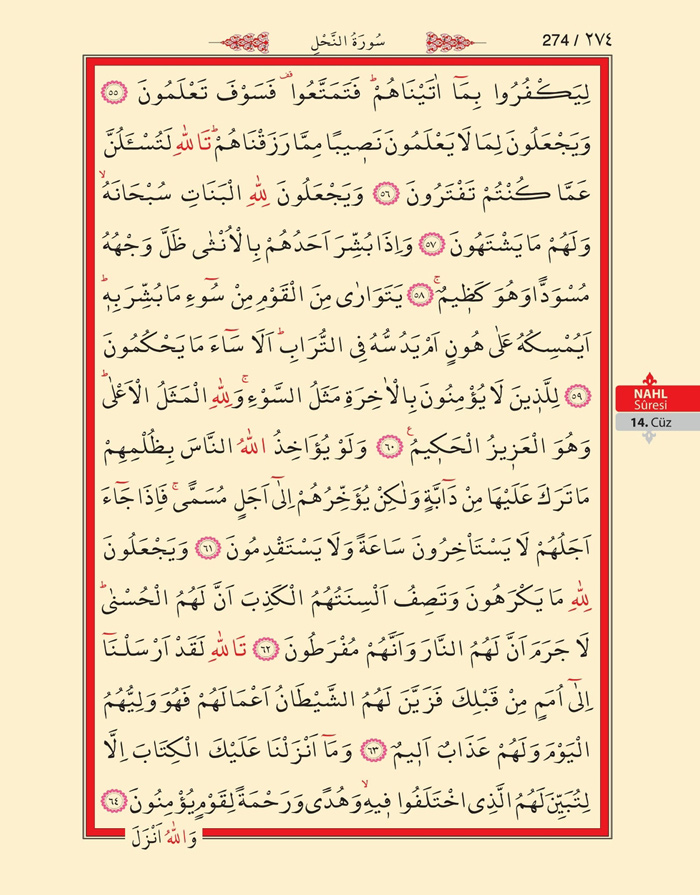 274 / ٢٧٤
سُورَةُ النَّحْلِ
لِيَكْفُرُوا بِمَٓا اٰتَيْنَاهُمْۜ فَتَمَتَّعُوا۠ فَسَوْفَ تَعْلَمُونَ ﴿٥٥﴾
وَيَجْعَلُونَ لِمَا لَا يَعْلَمُونَ نَص۪يبًا مِمَّا رَزَقْنَاهُمْۜ تَاللّٰهِ لَتُسْـَٔلُنَّ
عَمَّا كُنْتُمْ تَفْتَرُونَ ﴿٥٦﴾ وَيَجْعَلُونَ لِلّٰهِ الْبَنَاتِ سُبْحَانَهُۙ
وَلَهُمْ مَا يَشْتَهُونَ ﴿٥٧﴾ وَاِذَا بُشِّرَ اَحَدُهُمْ بِالْاُنْثٰى ظَلَّ وَجْهُهُ
مُسْوَدًّا وَهُوَ كَظ۪يمٌۚ ﴿٥٨﴾ يَتَوَارٰى مِنَ الْقَوْمِ مِنْ سُٓوءِ مَا بُشِّرَ بِه۪ۜ
اَيُمْسِكُهُ عَلٰى هُونٍ اَمْ يَدُسُّهُ فِي التُّرَابِۜ اَلَا سَٓاءَ مَا يَحْكُمُونَ
﴿٥٩﴾ لِلَّذ۪ينَ لَا يُؤْمِنُونَ بِالْاٰخِرَةِ مَثَلُ السَّوْءِۚ وَلِلّٰهِ الْمَثَلُ الْاَعْلٰىۜ
وَهُوَ الْعَز۪يزُ الْحَك۪يمُ۟ ﴿٦٠﴾ وَلَوْ يُؤَاخِذُ اللّٰهُ النَّاسَ بِظُلْمِهِمْ
مَا تَرَكَ عَلَيْهَا مِنْ دَٓابَّةٍ وَلٰكِنْ يُؤَخِّرُهُمْ اِلٰٓى اَجَلٍ مُسَمًّىۚ فَاِذَا جَٓاءَ
اَجَلُهُمْ لَا يَسْتَأْخِرُونَ سَاعَةً وَلَا يَسْتَقْدِمُونَ ﴿٦١﴾ وَيَجْعَلُونَ
لِلّٰهِ مَا يَكْرَهُونَ وَتَصِفُ اَلْسِنَتُهُمُ الْكَذِبَ اَنَّ لَهُمُ الْحُسْنٰىۜ
لَا جَرَمَ اَنَّ لَهُمُ النَّارَ وَاَنَّهُمْ مُفْرَطُونَ ﴿٦٢﴾ تَاللّٰهِ لَقَدْ اَرْسَلْنَٓا
اِلٰٓى اُمَمٍ مِنْ قَبْلِكَ فَزَيَّنَ لَهُمُ الشَّيْطَانُ اَعْمَالَهُمْ فَهُوَ وَلِيُّهُمُ
الْيَوْمَ وَلَهُمْ عَذَابٌ اَل۪يمٌ ﴿٦٣﴾ وَمَٓا اَنْزَلْنَا عَلَيْكَ الْكِتَابَ اِلَّا
لِتُبَيِّنَ لَهُمُ الَّذِي اخْتَلَفُوا ف۪يهِۙ وَهُدًى وَرَحْمَةً لِقَوْمٍ يُؤْمِنُونَ ﴿٦٤﴾
وَاللّٰهُ اَنْزَلَ
NAHL
Sûresi
14. Cüz